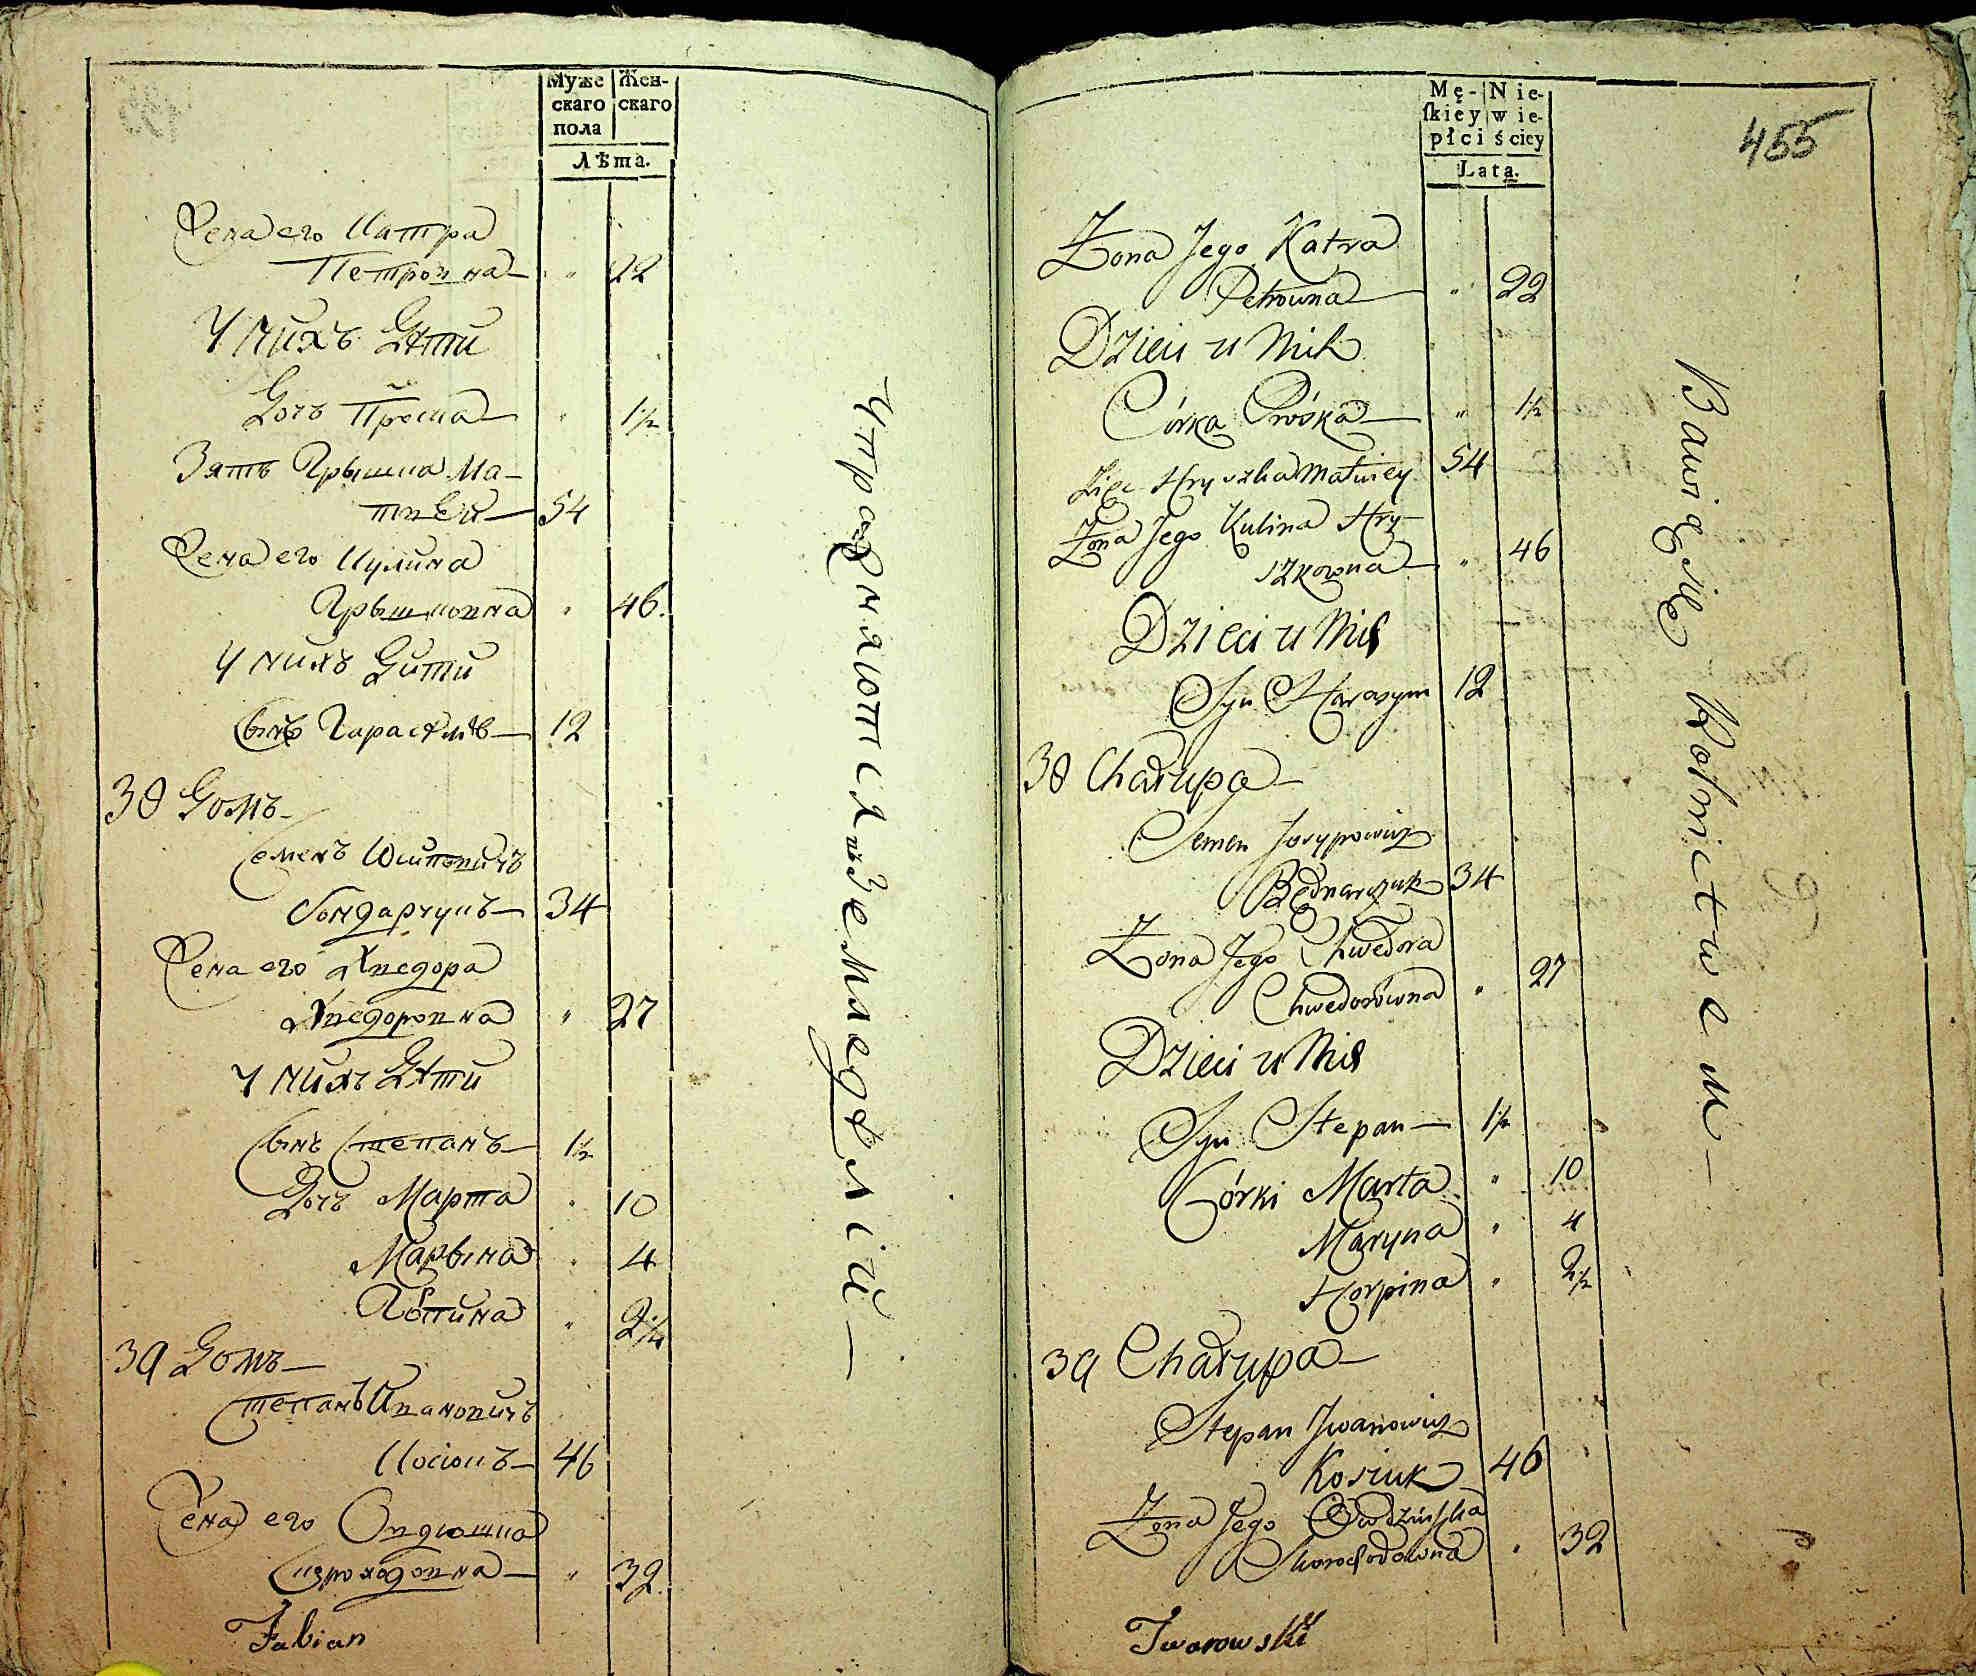 Муже
скаго
пола
Жен-
скаго
Лѣта.
Жена его Катра
Петровна — " 22
У нихъ Дѣти
Дочъ Проска — " 1½
Зять Грышка Ма-
твѣй — 54
Жена его Кулина
Грышковна " 46.
У нихъ Дити
Сынъ Гарасимъ — 12
38 Домъ —
Семенъ Юсиповичъ
Бондарчукъ — 34
Жена его Хведора
Хведоровна " 27
У нихъ Дѣти
Сынъ Степанъ — 1½
Дочъ Марта " 10
Марына " 4
Горпина " 2½
39 Домъ —
Степанъ Ивановичъ
Косіюкъ — 46
Жена его
— " 32
Fabian
Упражняются въ Земледѣліи —
Mę-
skiey
płci
Nie-
wie-
ściey
Lata.
455
Żona Jego Katra
Petrowna — " 22
Dzieci u Nich
Córka Próska — " 1½
Zięć Hryszka Matwiey 54
Żona Jego Kulina Hry-
szkowna — " 46
Dzieci u Nich
Syn Harasym 12
38 Chałupa —
Semen Josypowicz
Bednarczuk 34
Żona Jego Chwedora
Chwedorówna " 27
Dzieci u Nich
Syn Stepan — 1½
Córki Marta " 10
Maryna " 4
Horpina " 2½
39 Chałupa —
Stepan Jwanowicz
Kosiuk 46
Żona Jego
" 32
Jwarowski
Bawią się Rolnictwem —